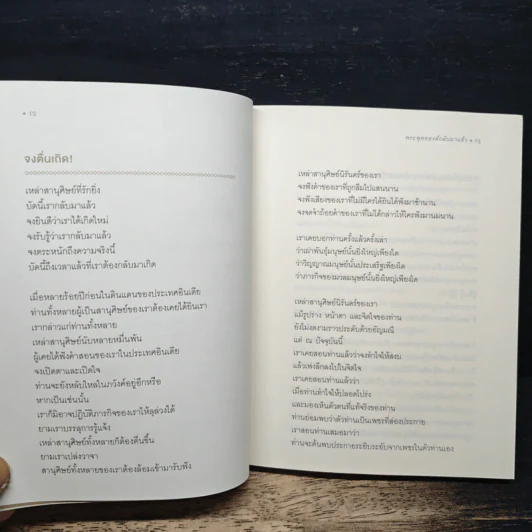 ๑๖
จงตื่นเถิด!
เหล่าสานุศิษย์ที่รักยิ่ง
บัดนี้เรากลับมาแล้ว
จงยินดีว่าเราได้เกิดใหม่
จงรับรู้ว่าเรากลับมาแล้ว
จงตระหนักถึงความจริงนี้
บัดนี้ถึงเวลาแล้วที่เราต้องกลับมาเกิด
เมื่อหลายร้อยปีก่อนในดินแดนของประเทศอินเดีย
ท่านทั้งหลายผู้เป็นสานุศิษย์ของเราต้องเคยได้ยินเรา
เรากล่าวแก่ท่านทั้งหลาย
เหล่าสานุศิษย์นับหลายหมื่นพัน
ผู้เคยได้ฟังคำสอนของเราในประเทศอินเดีย
จงเปิดตาและเปิดใจ
ท่านจะยังหลับใหลในภวังค์อยู่อีกหรือ
หากเป็นเช่นนั้น
เราก็มิอาจปฏิบัติภารกิจของเราให้ลุล่วงได้
ยามเราบรรลุการรู้แจ้ง
เหล่าสานุศิษย์ทั้งหลายก็ต้องตื่นขึ้น
ยามเราเปล่งวาจา
สานุศิษย์ทั้งหลายของเราต้องล้อมเข้ามารับฟัง
พระพุทธองค์กลับมาแล้ว • ๑๗
เหล่าสานุศิษย์นิรันดร์ของเรา
จงฟังคำของเราที่ถูกลืมไปแสนนาน
จงฟังเสียงของเราที่ไม่มีใครได้ยินได้ฟังมาช้านาน
จงจดจำถ้อยคำของเราที่ไม่ได้กล่าวให้ใครฟังมานมนาน
เราเคยบอกท่านครั้งแล้วครั้งเล่า
ว่าเผ่าพันธุ์มนุษย์นั้นยิ่งใหญ่เพียงใด
ว่าวิญญาณมนุษย์นั้นประเสริฐเพียงใด
ว่าภารกิจของมวลมนุษย์นั้นยิ่งใหญ่เพียงใด
เหล่าสานุศิษย์นิรันดร์ของเรา
แม้รูปร่าง หน้าตา และจิตใจของท่าน
ยังไม่งดงามราวประดับด้วยอัญมณี
แต่ ณ ปัจจุบันนี้
เราเคยสอนท่านแล้วว่าจงทำใจให้สงบ
แล้วเพ่งลึกลงไปในจิตใจ
เราเคยสอนท่านแล้วว่า
เมื่อท่านทำใจให้ปลอดโปร่ง
และมองเห็นตัวตนที่แท้จริงของท่าน
ท่านย่อมพบว่าตัวท่านเป็นเพชรที่ส่องประกาย
เราสอนท่านเสมอมาว่า
ท่านจะค้นพบประกายระยิบระยับจากเพชรในตัวท่านเอง